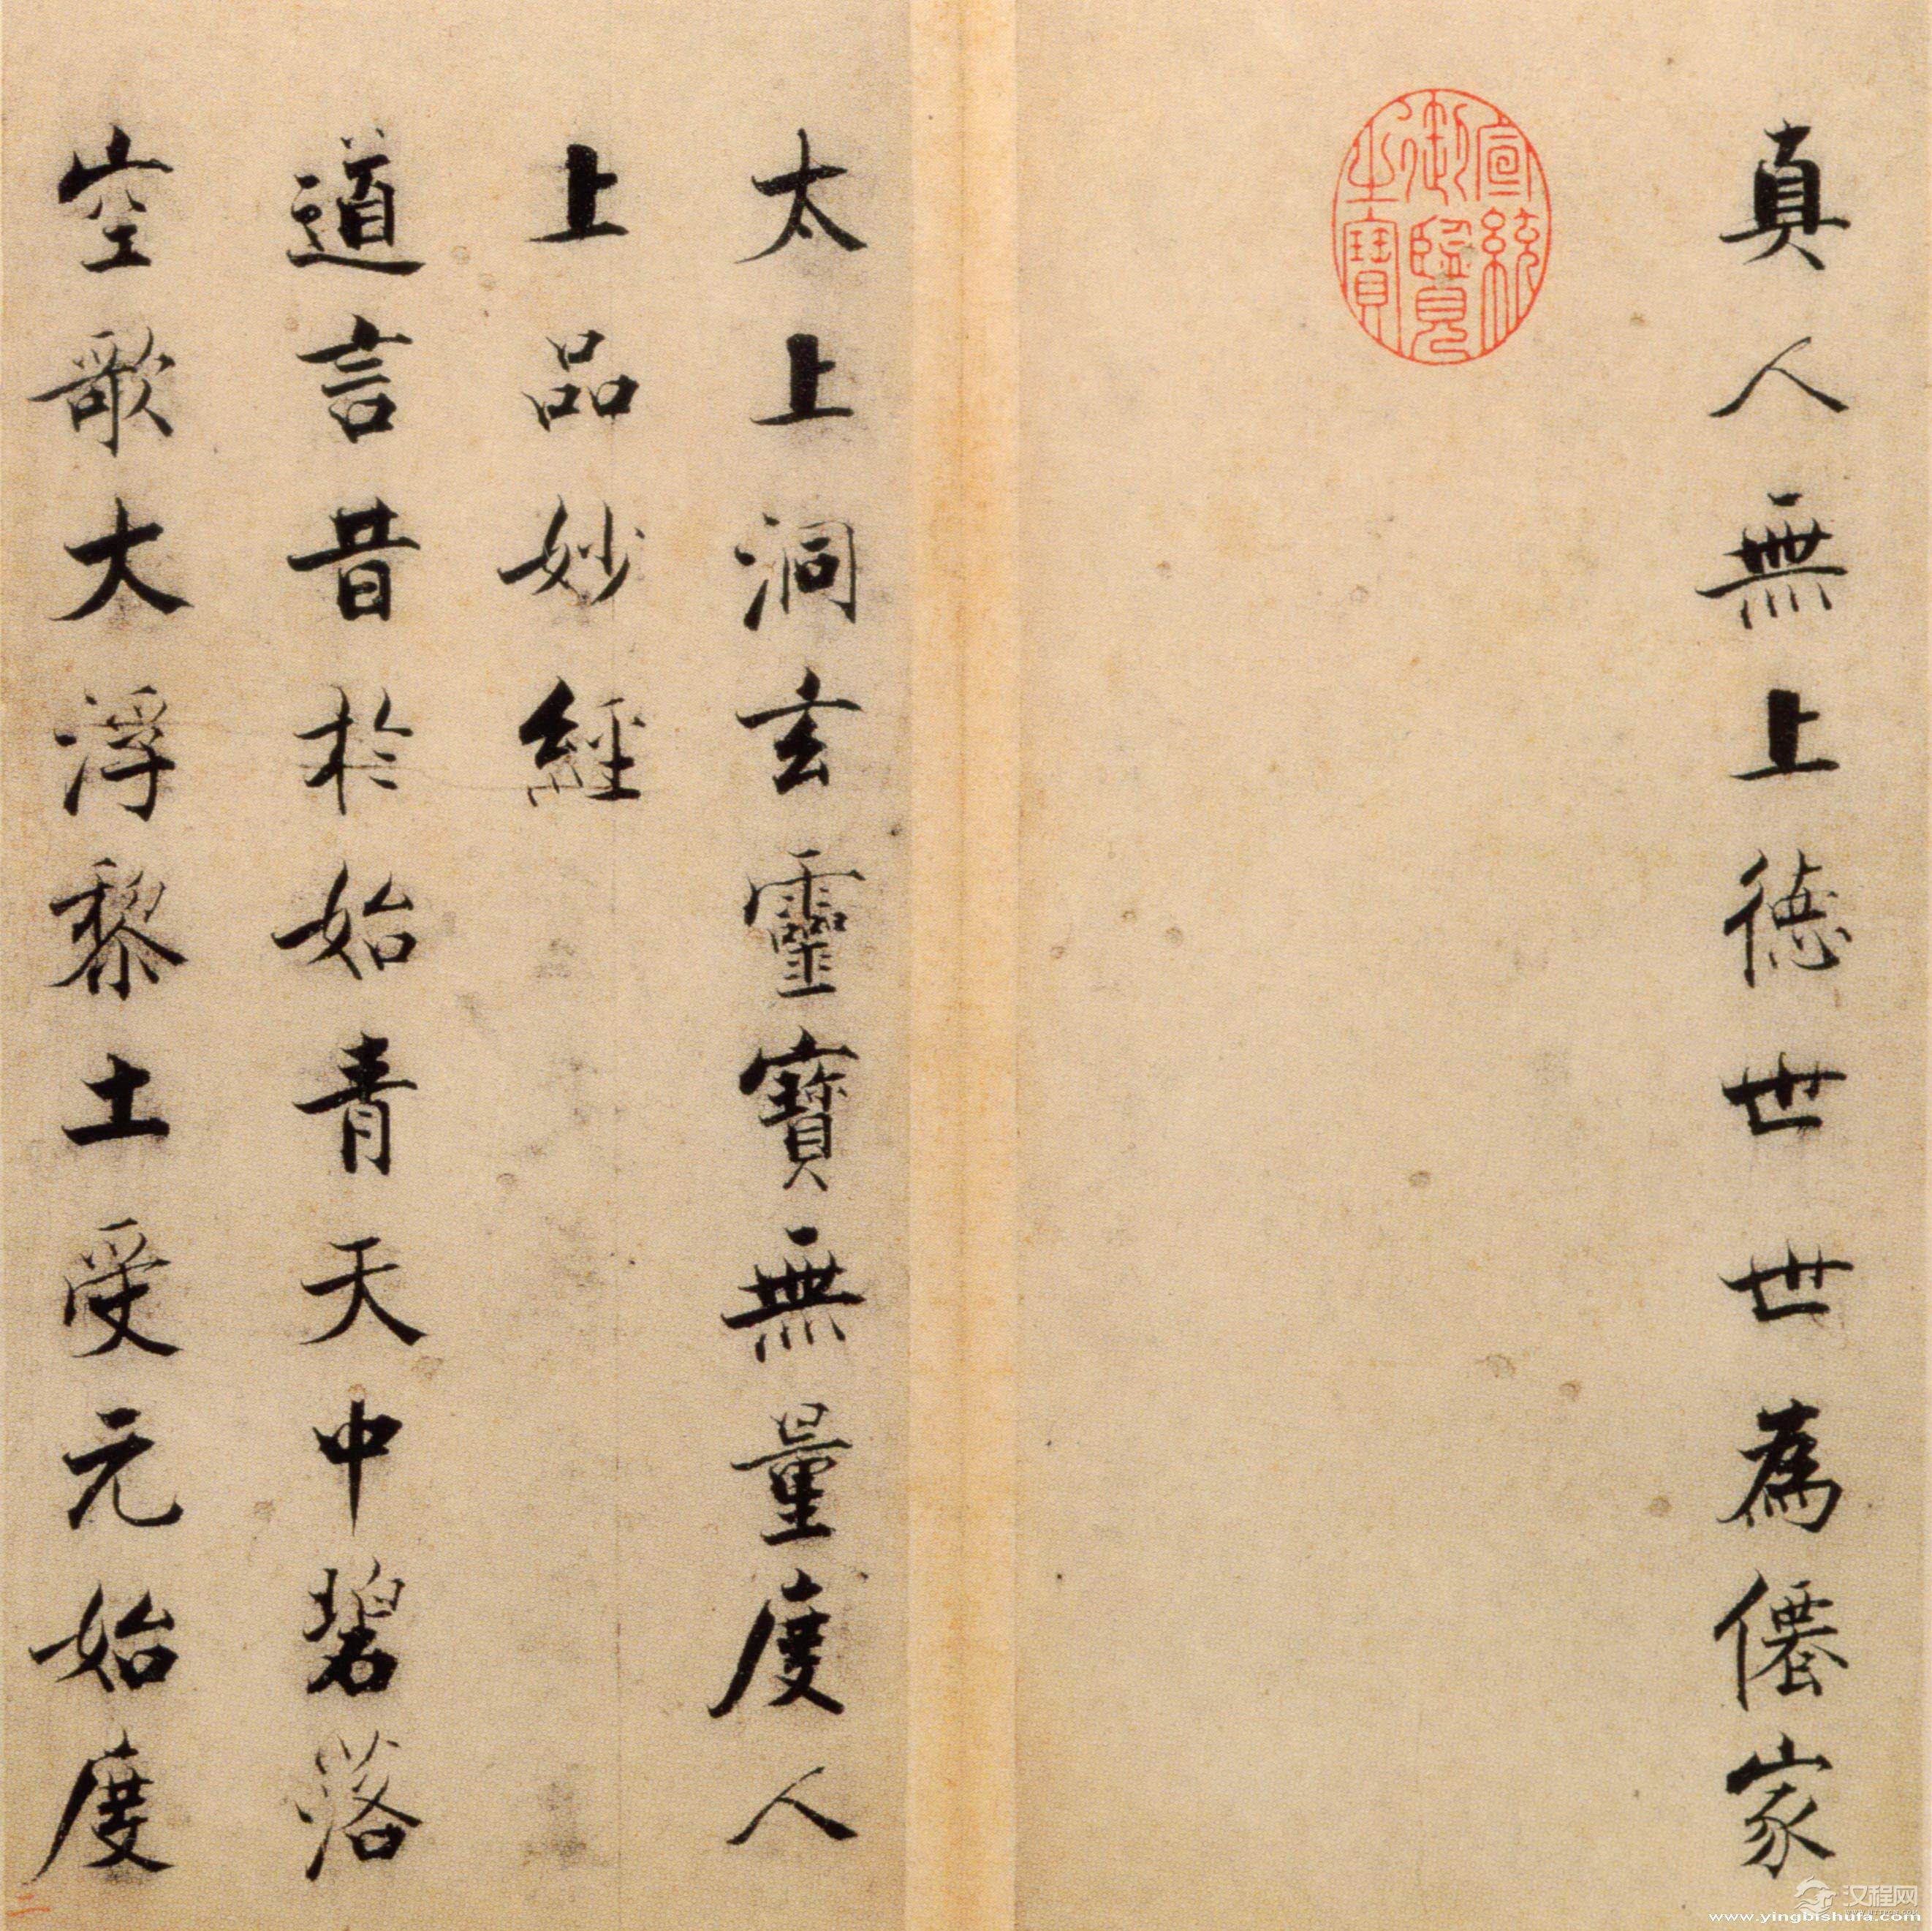 真人無上德世世為僊家
宣統
御覽
之寶
太上洞玄靈寶無量度人
上品妙經
道言昔於始青天中碧落
空歌大浮黎土受元始度
二
汉程网
www.yingbishufa.com